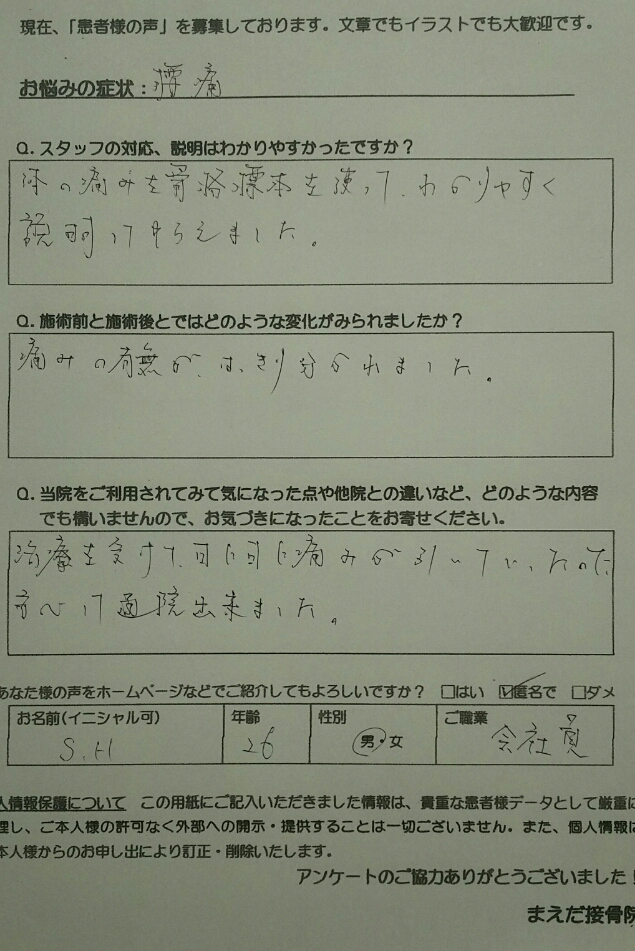 現在、「患者様の声」を募集しております。文章でもイラストでも大歓迎です。
お悩みの症状：腰痛
Q. スタッフの対応、説明はわかりやすかったですか？
体の痛みを骨格標本を使って、わかりやすく
説明してもらえました。
Q. 施術前と施術後とではどのような変化がみられましたか？
痛みの有無が、はっきり分かれました。
Q. 当院をご利用されてみて気になった点や他院との違いなど、どのような内容
でも構いませんので、お気づきになったことをお寄せください。
治療を受けて、日に日に痛みが引いていったので、
安心して通院出来ました。
あなた様の声をホームページなどでご紹介してもよろしいですか？ □はい ☑匿名で □ダメ
お名前(イニシャル可) 年齢 性別 ご職業
S.H 26 男・女 会社員
人情報保護について この用紙にご記入いただきました情報は、貴重な患者様データとして厳重に
理し、ご本人様の許可なく外部への開示・提供することは一切ございません。また、個人情報は
本人様からのお申し出により訂正・削除いたします。
アンケートのご協力ありがとうございました！
まえだ接骨院